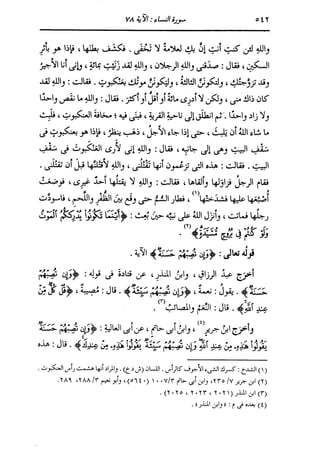 ٥٤٢ سورة النساء : الآية ٧٨
والله لئن كنتِ أنتِ إن بكِ لعلامةً لا تخفى . فكشف بطنها ، فإذا هو بأثرِ
السكين ، فقال : صدقنى والله الرجلان ، والله لقد زنَيتِ بمائةٍ ، وإنى أنا الأجيرُ
وقد تزوجتُكِ ، ولتكونن الثالثةُ ، وليكونن موتُكِ بعنكبوتٍ . فقالت : والله لقد
كان ذاك منى ، ولكن لا أدرى مائةٌ أو أقلُّ أو أكثرُ . فقال : والله ما نقص واحدًا
ولا زاد واحدًا . ثم انطلق إلى ناحيةِ القريةِ ، فبنى فيه مخافةَ العنكبوتِ ، فلبث
ما شاء الله أن يلبثَ ، حتى إذا جاء الأجلُ ، ذهب ينظرُ ، فإذا هو بعنكبوتٍ فى
سقفِ البيتِ وهى إلى جانبِه ، فقال : والله إنى لأرى العنكبوتَ فى سقفِ
البيتِ . فقالت : هذه التى تزعُمون أنها تقتُلُنى ، والله لأقتلنَّها قبلَ أن تقتلَنى .
فقام الرجلُ فزاولها وألقاها ، فقالت : والله لا يقتلُها أحدٌ غيرى . فوضعت
أصبعَها عليها فشدختها(١) ، فطار السمُّ حتى وقع بينَ الظفرِ واللحمِ ، فاسودَّت
رجلُها فماتت ، وأنزل الله على نبيِّه حينَ بُعث : ﴿أَيْنَمَا تَكُونُوا يُدْرِككُّمُ الْمَوْتُ
وَلَوْ كُنتُمْ فِى بُرُوجٍ مُّشَيَّدَةٍ﴾(٢) .
قولُه تعالى : ﴿وَإِن تُصِبْهُمْ حَسَنَةٌ﴾ الآية .
أخرَج عبدُ الرزاقِ ، وابنُ المنذرِ ، عن قتادةَ فى قولِه : ﴿وَإِن تُصِبْهُمْ
حَسَنَةٌ﴾ . يقولُ : نعمةٌ ، ﴿وَإِن تُصِبْهُمْ سَيِّئَةٌ﴾ . قال : مصيبةٌ ، ﴿قُلْ كُلٌّ مِّنْ
عِندِ اللَّهِ﴾ . قال : النِّعمُ والمصائبُ(٣) .
وأخرَج ابنُ جريرٍ(٤) ، وابنُ أبى حاتمٍ ، عن أبى العاليةِ : ﴿وَإِن تُصِبْهُمْ حَسَنَةٌ
يَقُولُوا هَذِهِ مِنْ عِندِ اللَّهِ وَإِن تُصِبْهُمْ سَيِّئَةٌ يَقُولُوا هَذِهِ مِنْ عِندِكَ﴾ . قال : هذه
(١) الشدخ : كسرك الشىء الأجوف كالرأس . اللسان (ش د خ) . والمراد أنها هشمت رأس العنكبوت .
(٢) ابن جرير ٧/ ٢٣٥، وابن أبى حاتم ٣/ ١٠٠٧ (٥٦٤٠)، وأبو نعيم ٣/ ٢٨٨، ٢٨٩.
(٣) ابن المنذر (٢٠٢١، ٢٠٢٣، ٢٠٢٥) .
(٤) بعده فى م : «وابن المنذر» .